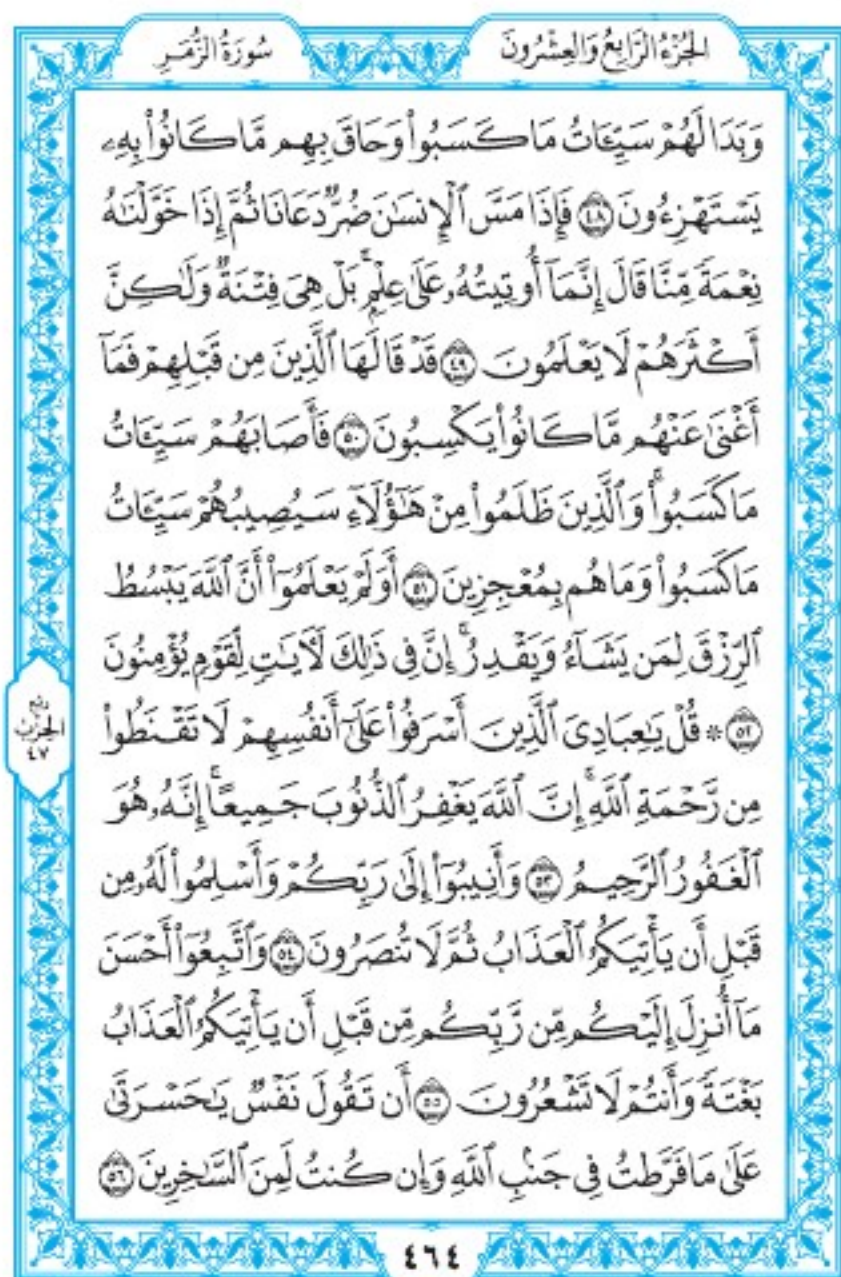 الجُزْءُ الرَّابِعُ وَالعِشْرُونَ
سُورَةُ الزُّمَرِ
وَبَدَا لَهُمْ سَيِّـَٔاتُ مَا كَسَبُوا۟ وَحَاقَ بِهِم مَّا كَانُوا۟ بِهِۦ
يَسْتَهْزِءُونَ ٤٨ فَإِذَا مَسَّ ٱلْإِنسَٰنَ ضُرٌّ دَعَانَا ثُمَّ إِذَا خَوَّلْنَٰهُ
نِعْمَةً مِّنَّا قَالَ إِنَّمَآ أُوتِيتُهُۥ عَلَىٰ عِلْمٍۭ ۚ بَلْ هِىَ فِتْنَةٌ وَلَٰكِنَّ
أَكْثَرَهُمْ لَا يَعْلَمُونَ ٤٩ قَدْ قَالَهَا ٱلَّذِينَ مِن قَبْلِهِمْ فَمَآ
أَغْنَىٰ عَنْهُم مَّا كَانُوا۟ يَكْسِبُونَ ٥٠ فَأَصَابَهُمْ سَيِّـَٔاتُ
مَا كَسَبُوا۟ ۚ وَٱلَّذِينَ ظَلَمُوا۟ مِنْ هَٰٓؤُلَآءِ سَيُصِيبُهُمْ سَيِّـَٔاتُ
مَا كَسَبُوا۟ وَمَا هُم بِمُعْجِزِينَ ٥١ أَوَلَمْ يَعْلَمُوٓا۟ أَنَّ ٱللَّهَ يَبْسُطُ
ٱلرِّزْقَ لِمَن يَشَآءُ وَيَقْدِرُ ۚ إِنَّ فِى ذَٰلِكَ لَـَٔايَٰتٍ لِّقَوْمٍ يُؤْمِنُونَ
٥٢ * قُلْ يَٰعِبَادِىَ ٱلَّذِينَ أَسْرَفُوا۟ عَلَىٰٓ أَنفُسِهِمْ لَا تَقْنَطُوا۟
مِن رَّحْمَةِ ٱللَّهِ ۚ إِنَّ ٱللَّهَ يَغْفِرُ ٱلذُّنُوبَ جَمِيعًا ۚ إِنَّهُۥ هُوَ
ٱلْغَفُورُ ٱلرَّحِيمُ ٥٣ وَأَنِيبُوٓا۟ إِلَىٰ رَبِّكُمْ وَأَسْلِمُوا۟ لَهُۥ مِن
قَبْلِ أَن يَأْتِيَكُمُ ٱلْعَذَابُ ثُمَّ لَا تُنصَرُونَ ٥٤ وَٱتَّبِعُوٓا۟ أَحْسَنَ
مَآ أُنزِلَ إِلَيْكُم مِّن رَّبِّكُم مِّن قَبْلِ أَن يَأْتِيَكُمُ ٱلْعَذَابُ
بَغْتَةً وَأَنتُمْ لَا تَشْعُرُونَ ٥٥ أَن تَقُولَ نَفْسٌ يَٰحَسْرَتَىٰ
عَلَىٰ مَا فَرَّطتُ فِى جَنۢبِ ٱللَّهِ وَإِن كُنتُ لَمِنَ ٱلسَّٰخِرِينَ ٥٦
ربع
الحزب
٤٧
٤٦٤